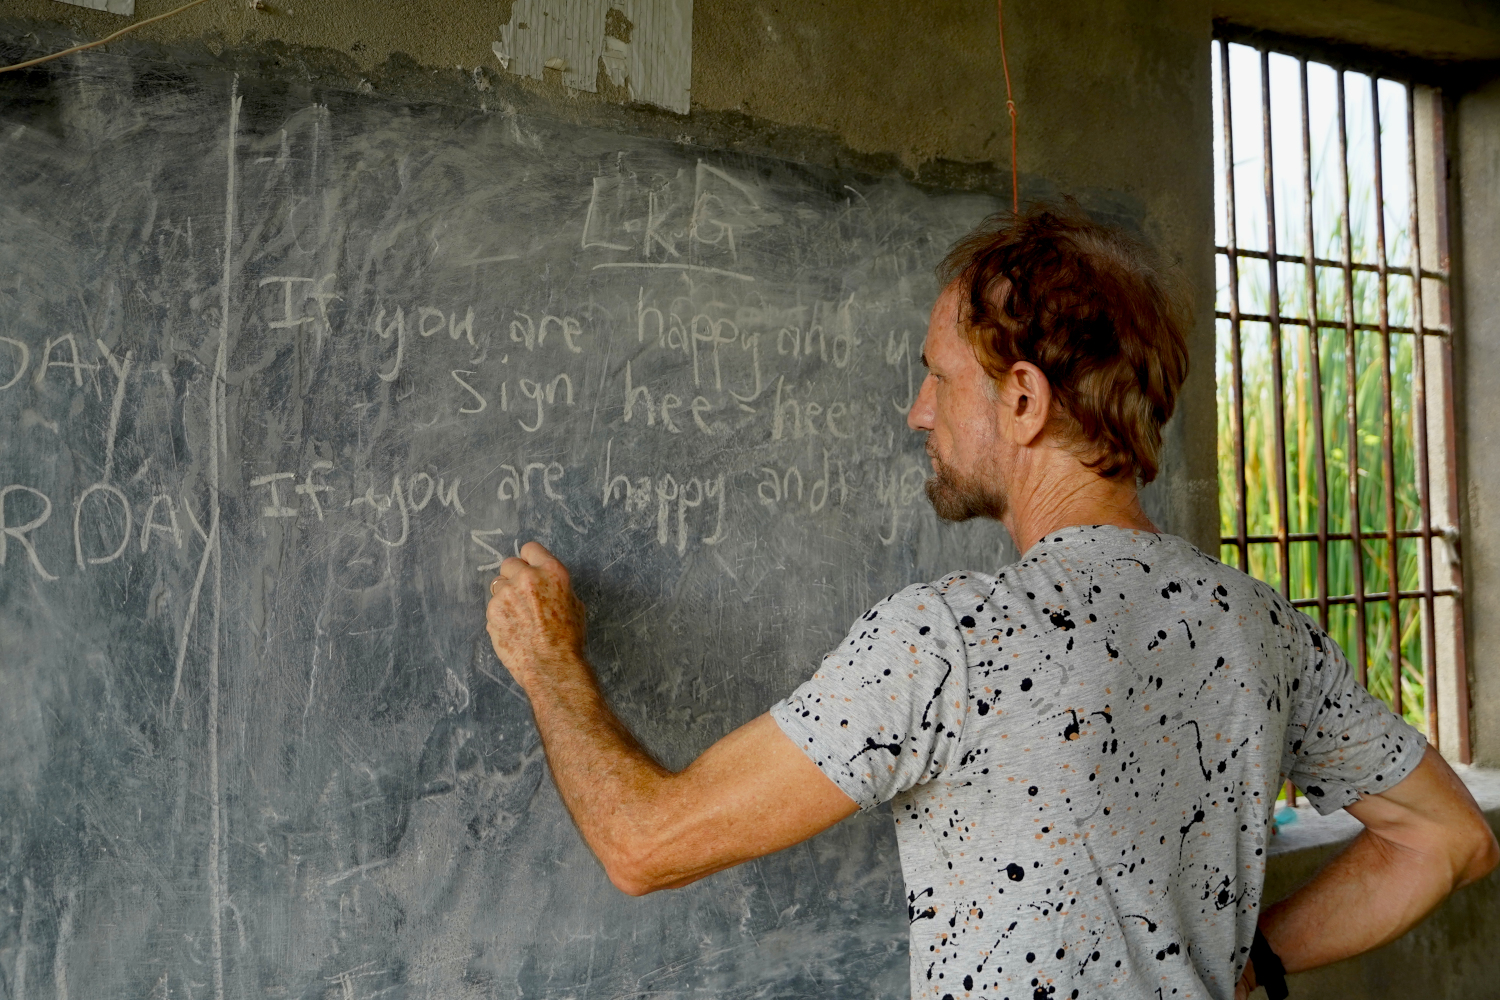 LKG
If you are happy and y
sign hee-hee
If you are happy and yo
S
DAY
RDAY